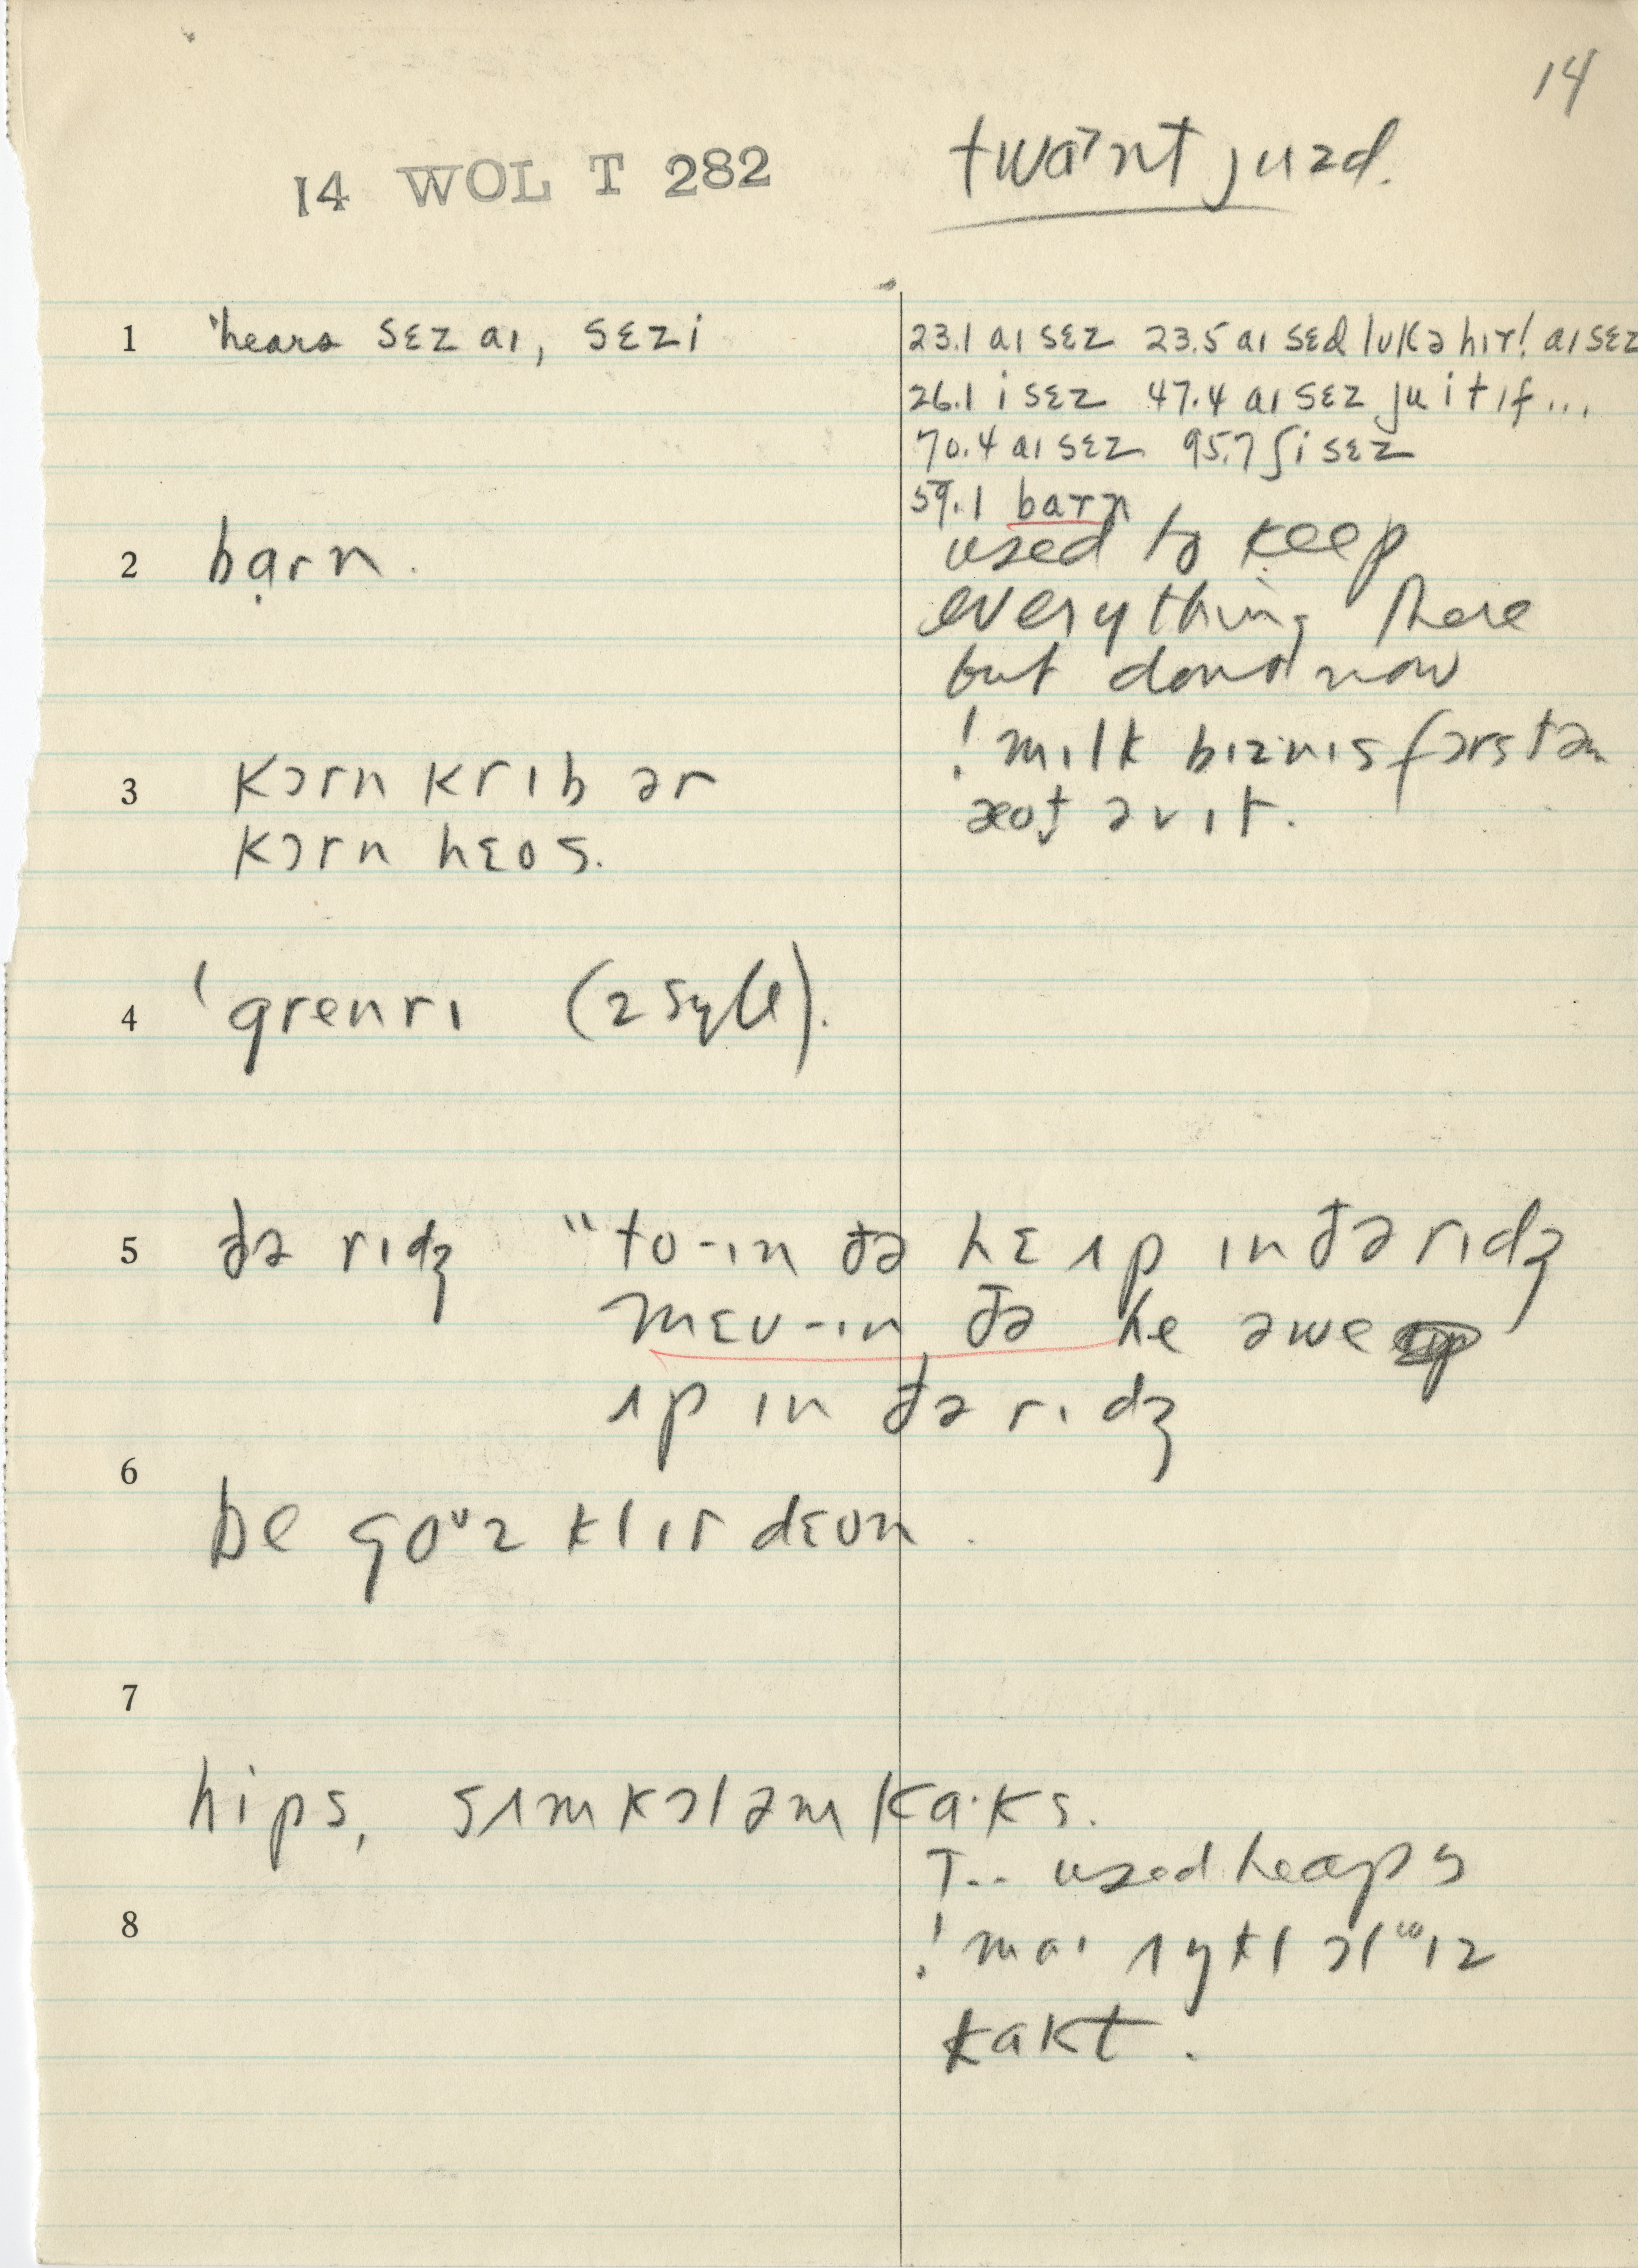 14
14 WOL T 282
twaᵊnt juzd.
1 'heard sɛz aɪ, sɛz i
23.1 aɪ sɛz 23.5 aɪ sɛd lʊk ə hɪr! aɪ sɛz
26.1 i sɛz 47.4 aɪ sɛz ju it ɪf...
70.4 aɪ sɛz 95.7 ʃi sɛz
59.1 barn
2 bạrn.
used to keep
everything there
but dont now
3 kɔrn krɪb ər
kɔrn hɛʊs.
! mɪlk bɪznɪs fərst ən
əv ɪt.
4 ˈgrenrɪ (2 sylle).
5 ðə rɪdʒ "to-ɪn ðə hɛ ʌp ɪn ðə rɪdʒ
mɛʊ-ɪn ðə he əwe
ʌp ɪn ðə rɪdʒ
6
be goᶷz klɪr dɛʊn.
7
hips, sʌm kɔl əm ka·ks.
T.. used heaps
8
! maɪ ʌŋkl
kakt.